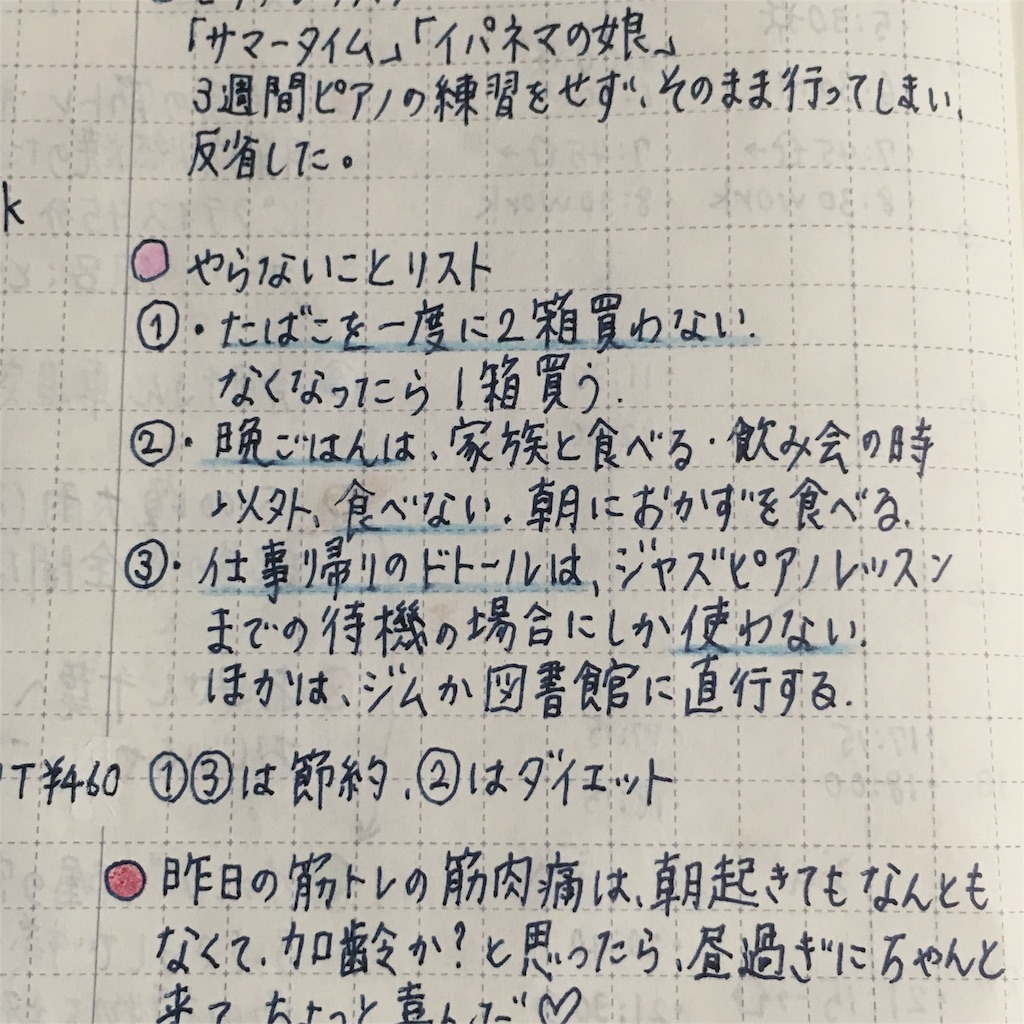 「サマータイム」「イパネマの娘」
3週間ピアノの練習をせず、そのまま行ってしまい、
反省した。
k
やらないことリスト
①・たばこを一度に2箱買わない.
なくなったら1箱買う.
②・晩ごはんは、家族と食べる・飲み会の時
以外、食べない.朝におかずを食べる.
③・仕事帰りのドトールは、ジャズピアノレッスン
までの待機の場合にしか使わない.
ほかは、ジムか図書館に直行する.
T¥460 ①③は節約、②はダイエット
昨日の筋トレの筋肉痛は、朝起きてもなんとも
なくて、加齢か?と思ったら、昼過ぎにちゃんと
来て、ちょっと喜んだ♡